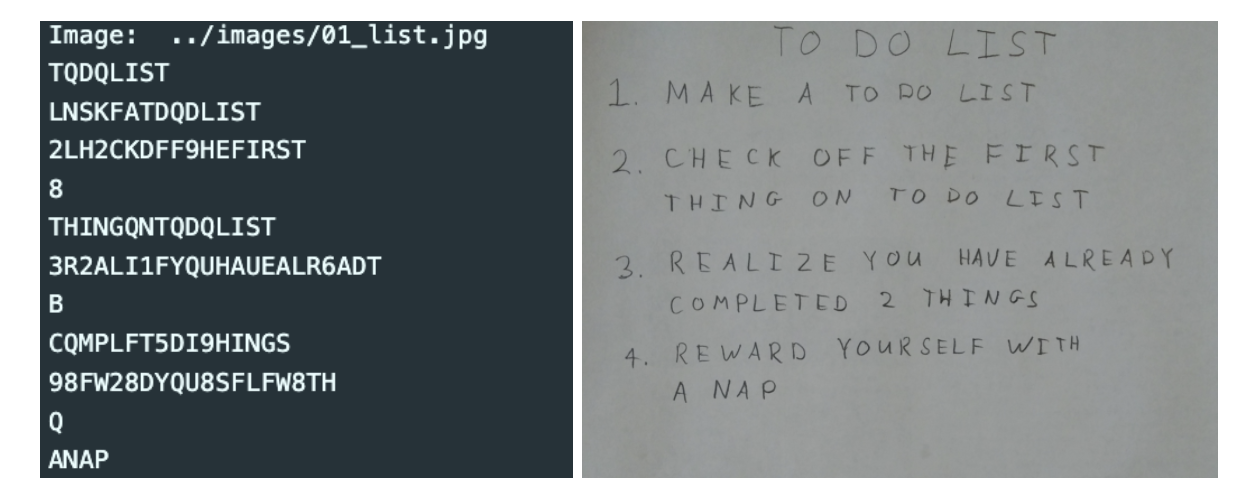 Image:  ../images/01_list.jpg
TQDQLIST
LNSKFATDQDLIST
2LH2CKDFF9HEFIRST
8
THINGQNTQDQLIST
3R2ALI1FYQUHAUEALR6ADT
B
CQMPLFT5DI9HINGS
98FW28DYQU8SFLFW8TH
Q
ANAP
TO DO LIST
1. MAKE A TO DO LIST
2. CHECK OFF THE FIRST
THING ON TO DO LIST
3. REALIZE YOU HAVE ALREADY
COMPLETED 2 THINGS
4. REWARD YOURSELF WITH
A NAP